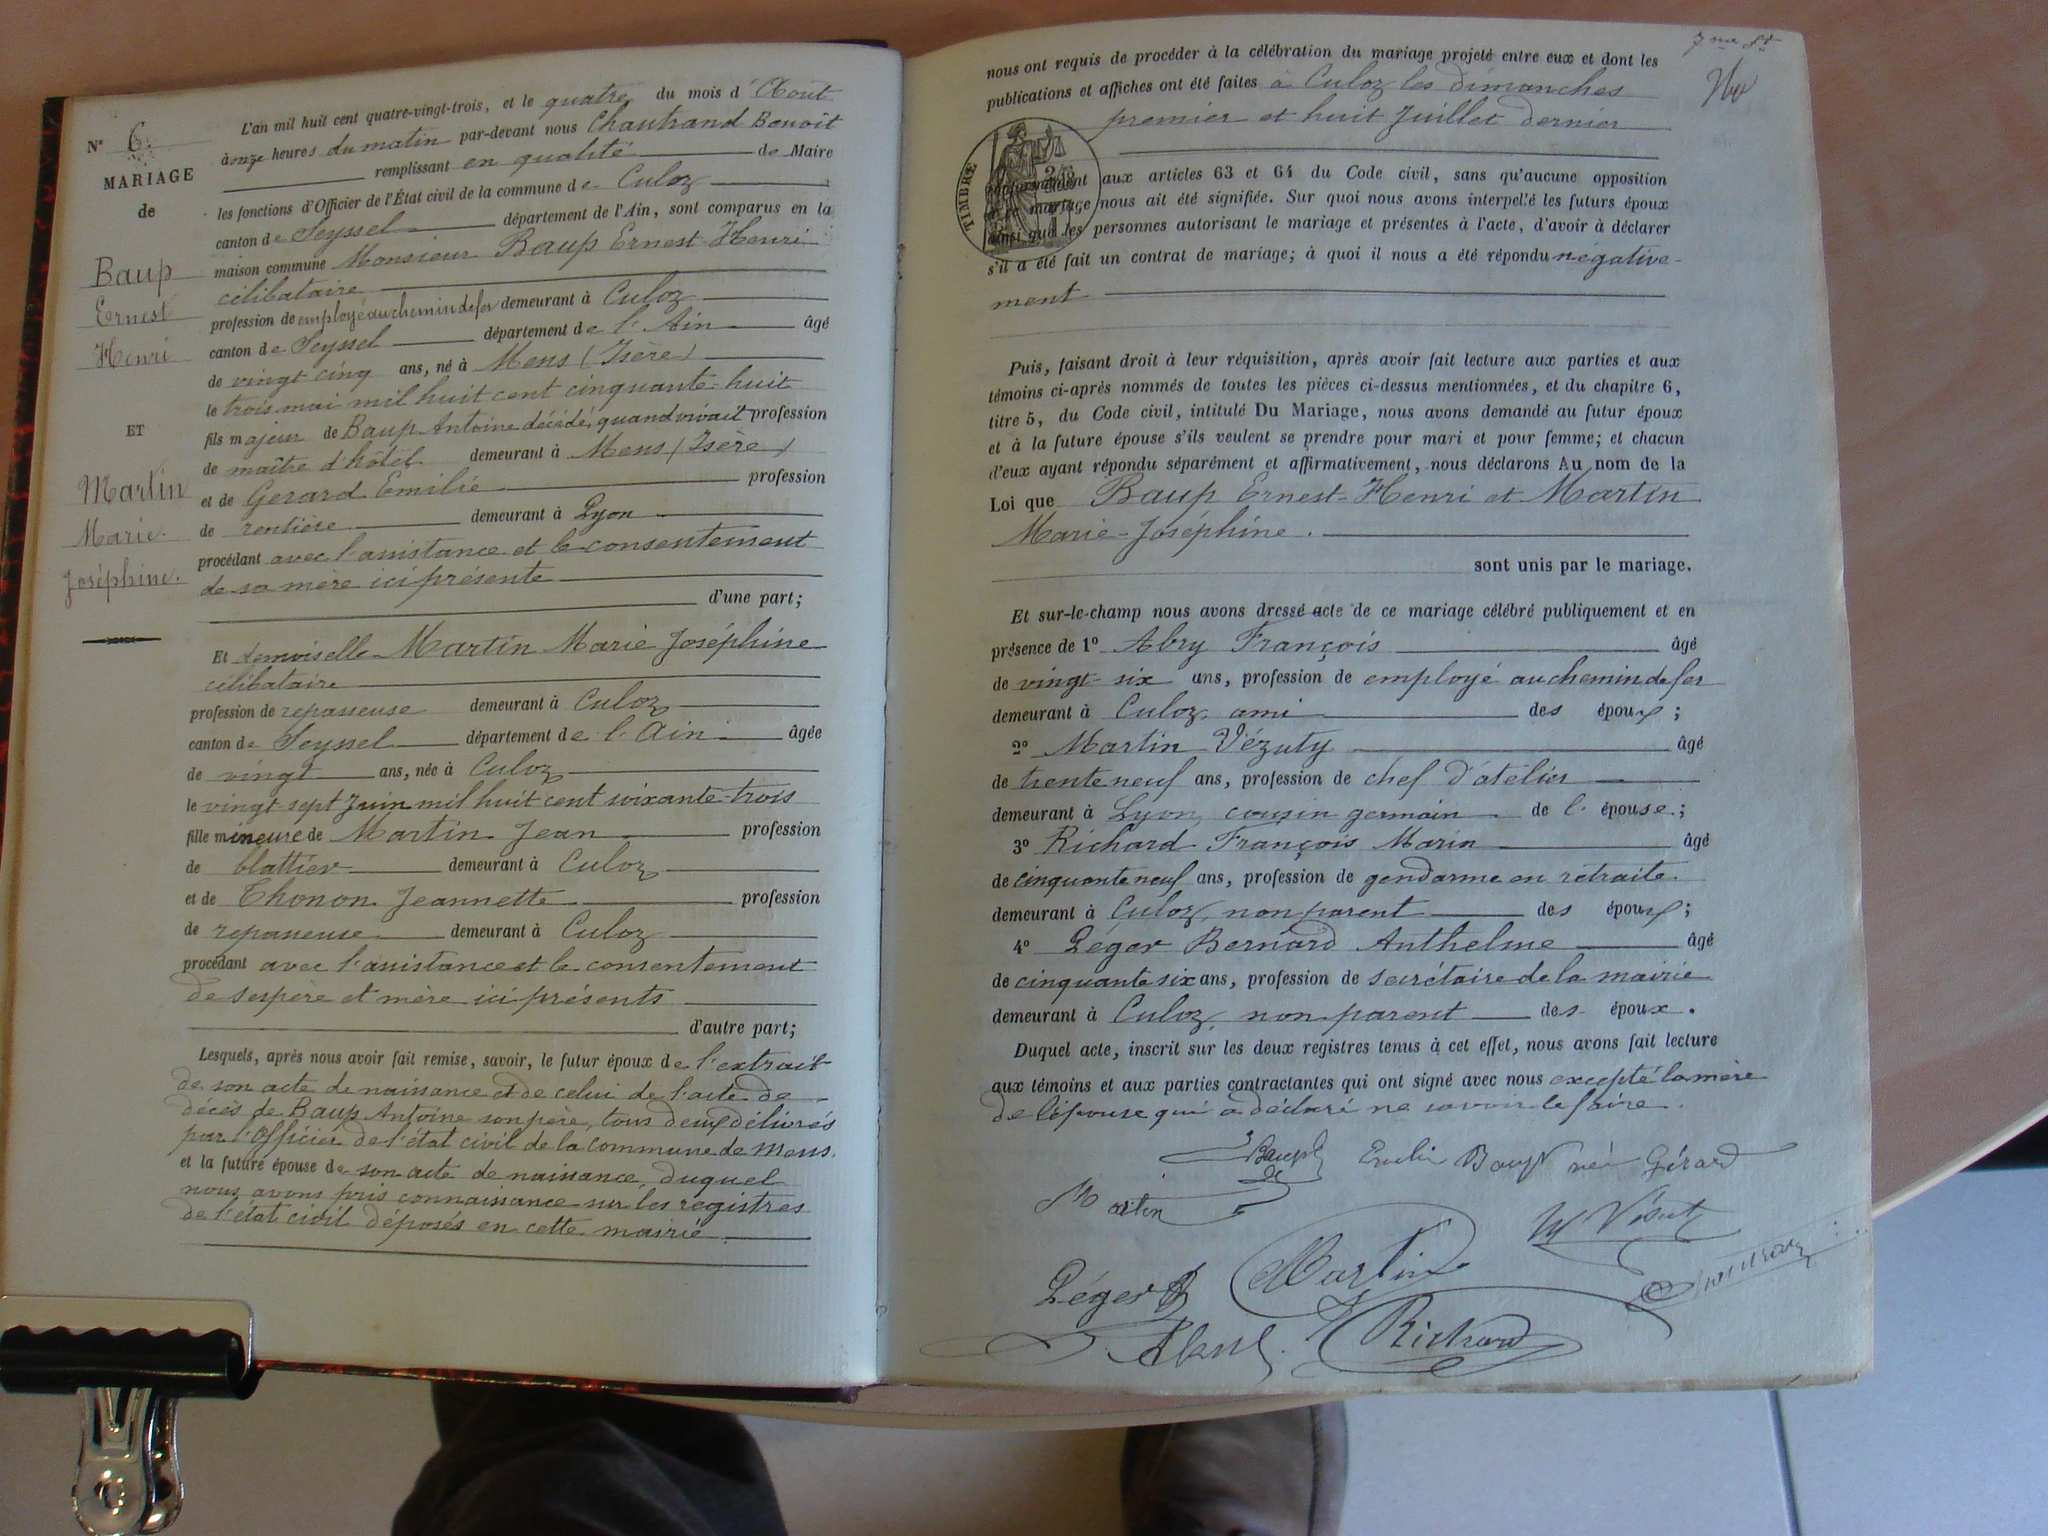 N° 6
MARIAGE
de
Baup
Ernest
Henri
ET
Martin
Marie
Joséphine.
L'an mil huit cent quatre-vingt-trois, et le quatre du mois d'Août
à onze heures du matin par-devant nous Chautrand Benoît
remplissant en qualité de Maire
les fonctions d'Officier de l'État civil de la commune de Culoz
canton de Seyssel département de l'Ain, sont comparus en la
maison commune Monsieur Baup Ernest-Henri
célibataire
profession de employé au chemin de fer demeurant à Culoz
canton de Seyssel département de l'Ain âgé
de vingt cinq ans, né à Mens (Isère)
le trois mai mil huit cent cinquante-huit
fils majeur de Baup Antoine décédé, quand vivait profession
de maître d'hôtel demeurant à Mens (Isère)
et de Gerard Emilie profession
de rentière demeurant à Lyon
procédant avec l'assistance et le consentement
de sa mère ici présente
d'une part;
Et demoiselle Martin Marie Joséphine
célibataire
profession de repasseuse demeurant à Culoz
canton de Seyssel département de l'Ain âgée
de vingt ans, née à Culoz
le vingt sept Juin mil huit cent soixante-trois
fille mineure de Martin Jean profession
de blattier demeurant à Culoz
et de Thonon Jeannette profession
de repasseuse demeurant à Culoz
procédant avec l'assistance et le consentement
de ses père et mère ici présents
d'autre part;
Lesquels, après nous avoir fait remise, savoir, le futur époux de l'extrait
de son acte de naissance et de celui de l'acte de
décès de Baup Antoine son père, tous deux délivrés
par l'Officier de l'état civil de la commune de Mens.
et la future épouse de son acte de naissance, duquel
nous avons pris connaissance sur les registres
de l'état civil déposés en cette mairie.
7me
nous ont requis de procéder à la célébration du mariage projeté entre eux et dont les
publications et affiches ont été faites à Culoz les dimanches
premier et huit Juillet dernier
TIMBRE
conformément aux articles 63 et 64 du Code civil, sans qu'aucune opposition
à ce mariage nous ait été signifiée. Sur quoi nous avons interpellé les futurs époux
ainsi que les personnes autorisant le mariage et présentes à l'acte, d'avoir à déclarer
s'il a été fait un contrat de mariage; à quoi il nous a été répondu négative-
ment
Puis, faisant droit à leur réquisition, après avoir fait lecture aux parties et aux
témoins ci-après nommés de toutes les pièces ci-dessus mentionnées, et du chapitre 6,
titre 5, du Code civil, intitulé Du Mariage, nous avons demandé au futur époux
et à la future épouse s'ils veulent se prendre pour mari et pour femme; et chacun
d'eux ayant répondu séparément et affirmativement, nous déclarons Au nom de la
Loi que Baup Ernest-Henri et Martin
Marie-Joséphine.
sont unis par le mariage.
Et sur-le-champ nous avons dressé acte de ce mariage célébré publiquement et en
présence de 1° Abry François âgé
de vingt-six ans, profession de employé au chemin de fer
demeurant à Culoz, ami des époux;
2° Martin Vézuty âgé
de trente neuf ans, profession de chef d'atelier
demeurant à Lyon, cousin germain de l'épouse;
3° Richard François Marin âgé
de cinquante neuf ans, profession de gendarme en retraite
demeurant à Culoz, non parent des époux;
4° Léger Bernard Anthelme âgé
de cinquante six ans, profession de secrétaire de la mairie
demeurant à Culoz, non parent des époux.
Duquel acte, inscrit sur les deux registres tenus à cet effet, nous avons fait lecture
aux témoins et aux parties contractantes qui ont signé avec nous excepté la mère
de l'épouse qui a déclaré ne savoir le faire.
Baup Emilie Baup née Gérard
Martin
Léger B Martin
Richard